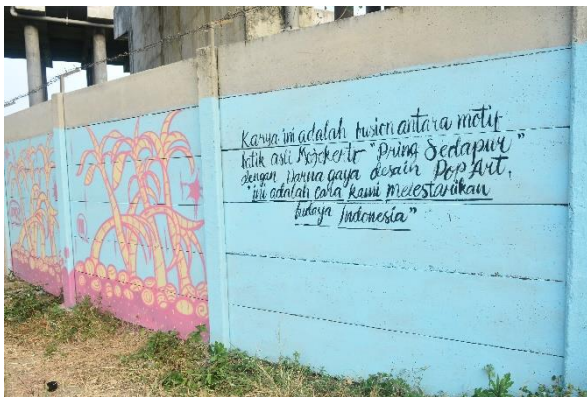 Karya ini adalah fusion antara motif
batik asli Mojokerto "Pring Sedapur"
dengan warna gaya desain Pop Art,
"ini adalah cara kami melestarikan
budaya Indonesia"